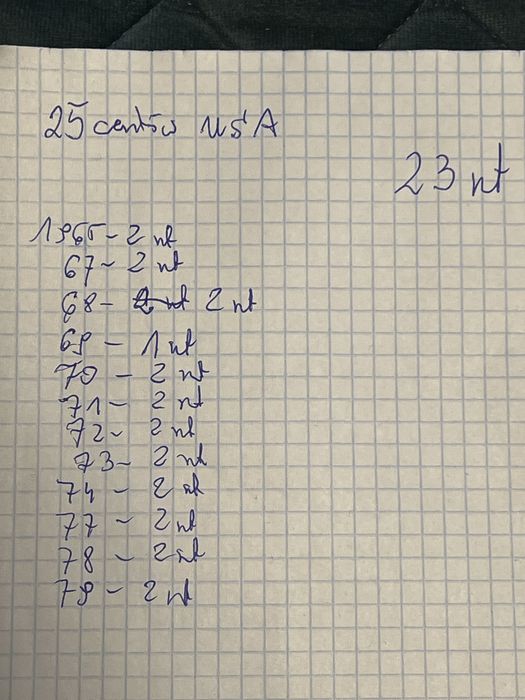 25 centów USA
23 nt
1965 - 2 nt
67 - 2 nt
68 - 2 nt 2 nt
69 - 1 nt
70 - 2 nt
71 - 2 nt
72 - 2 nt
73 - 2 nt
74 - 2 nt
77 - 2 nt
78 - 2 nt
79 - 2 nt